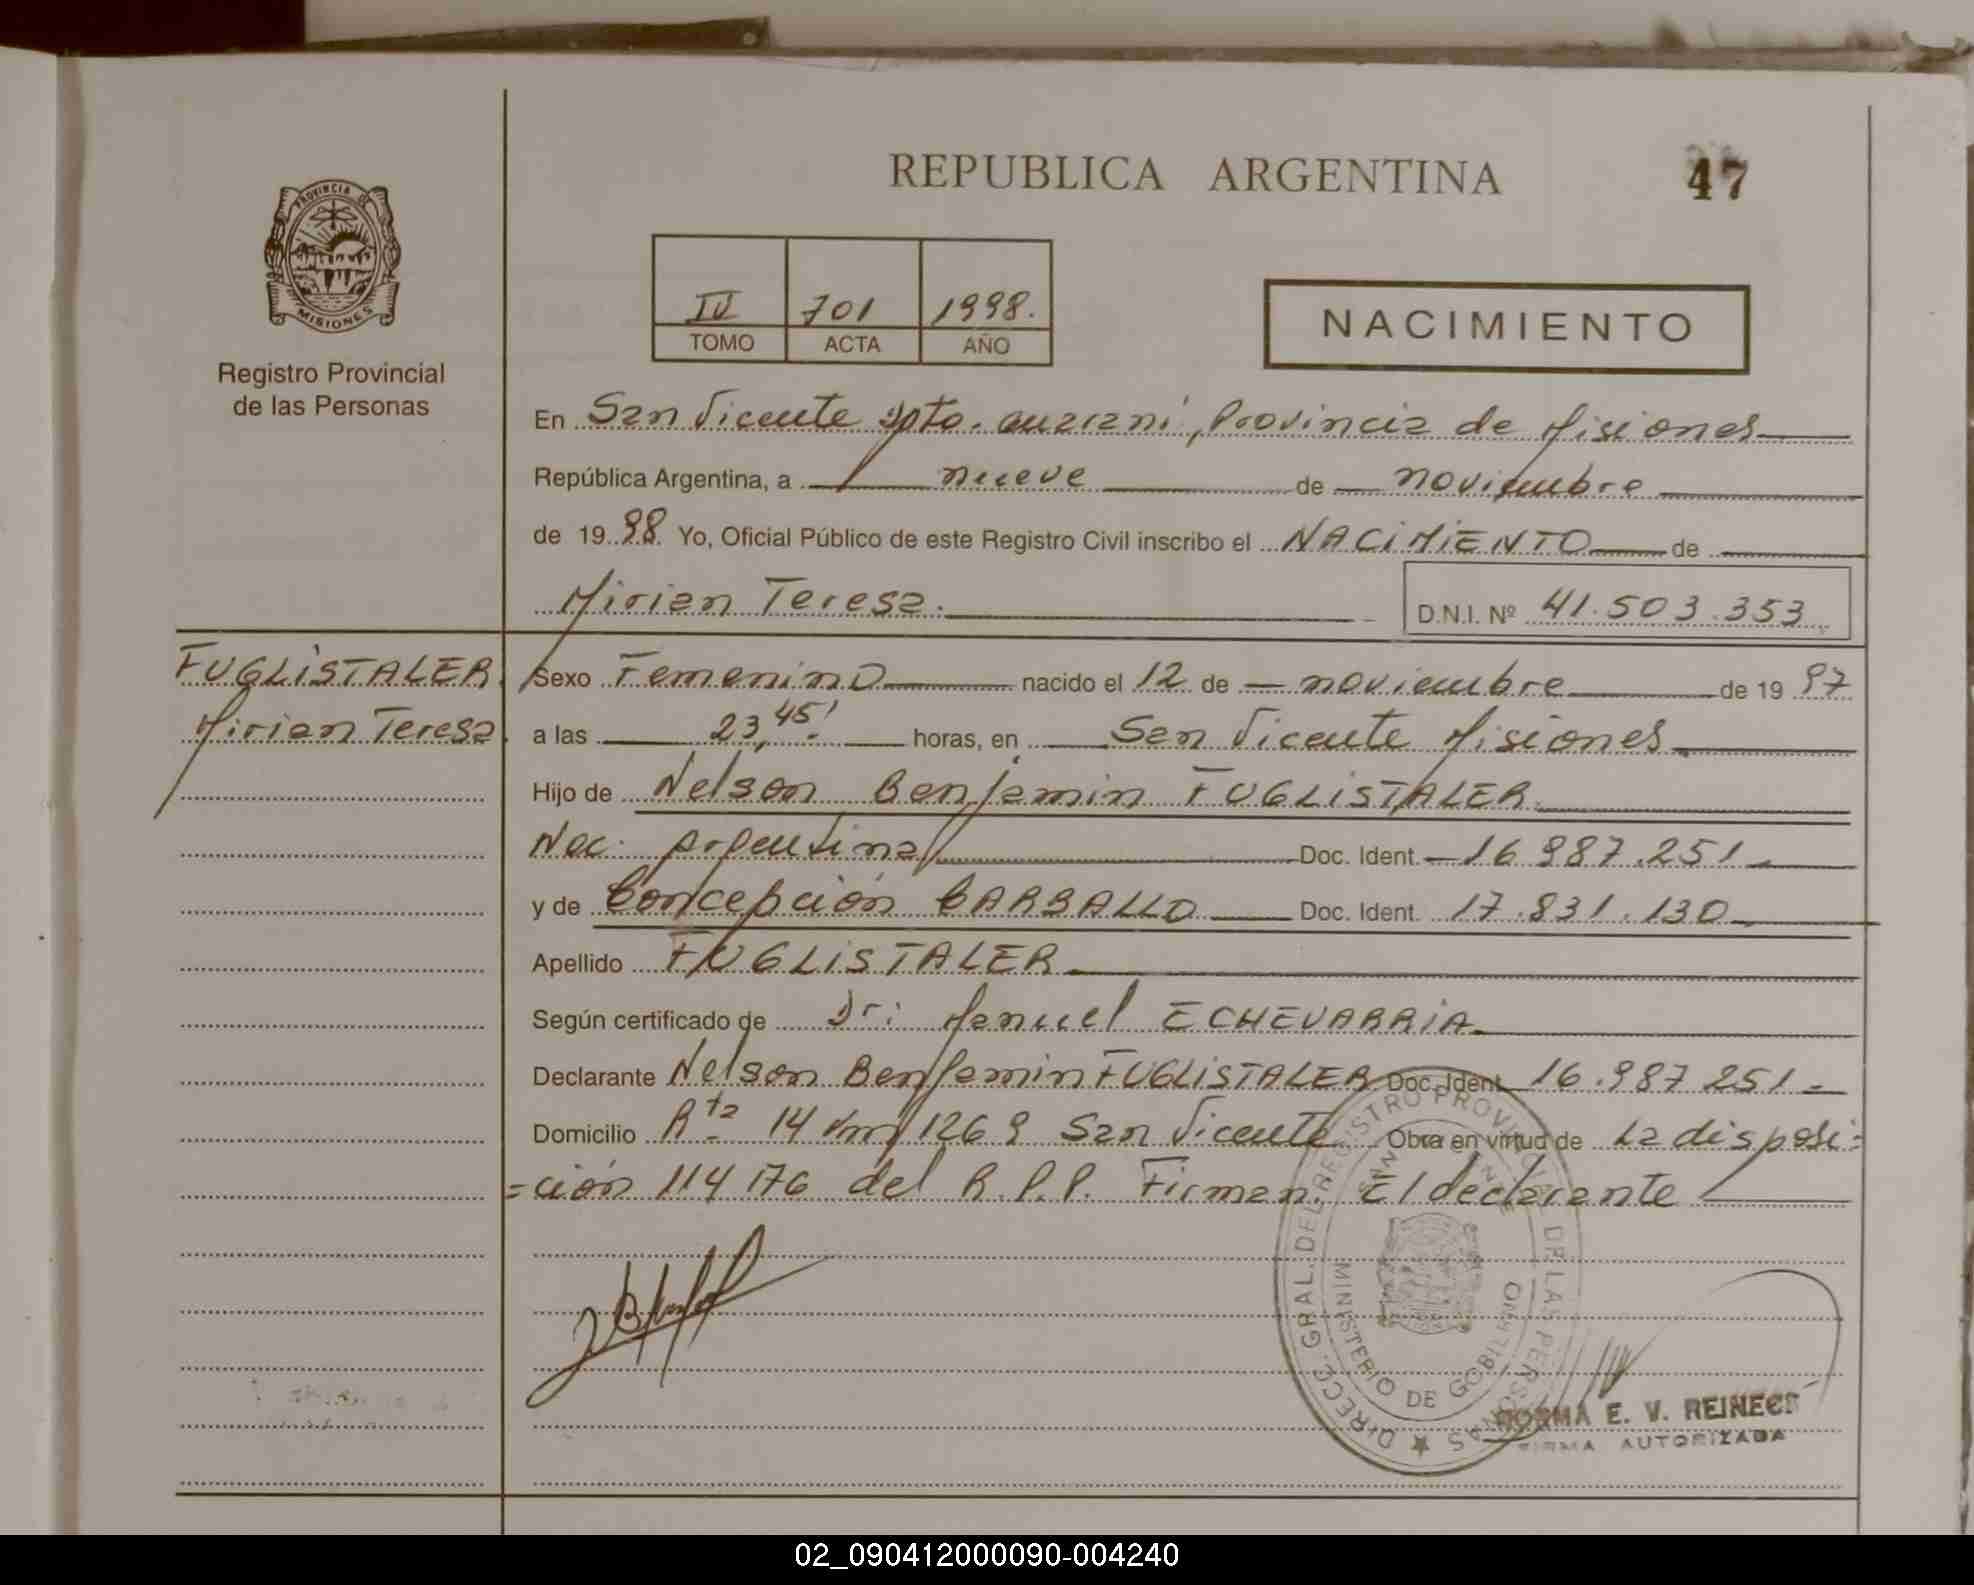 REPUBLICA ARGENTINA
47
PROVINCIA DE
MISIONES
Registro Provincial
de las Personas
IV 701 1998.
TOMO ACTA AÑO
NACIMIENTO
En San Vicente Dpto. Guaraní, Provincia de Misiones
República Argentina, a nueve de noviembre
de 1998 Yo, Oficial Público de este Registro Civil inscribo el NACIMIENTO de
Mirian Teresa.
D.N.I. Nº 41.503.353
FUGLISTALER.
Mirian Teresa.
Sexo Femenino nacido el 12 de noviembre de 1997
a las 23,45' horas, en San Vicente Misiones
Hijo de Nelson Benjamin FUGLISTALER
Nac. Argentina Doc. Ident. 16.987.251
y de Concepción CARBALLO Doc. Ident. 17.831.130
Apellido FUGLISTALER
Según certificado de Dr: Manuel ECHEVARRIA
Declarante Nelson Benjamin FUGLISTALER Doc. Ident. 16.987.251
Domicilio Rta 14 km 1269 San Vicente Obra en virtud de La disposi=
=ción 114/76 del R.P.P. Firman: El declarante
DIRECC. GRAL. DEL REGISTRO PROVINCIAL DE LAS PERSONAS
MINISTERIO DE GOBIERNO
NORMA E. V. REINECK
FIRMA AUTORIZADA
02_090412000090-004240